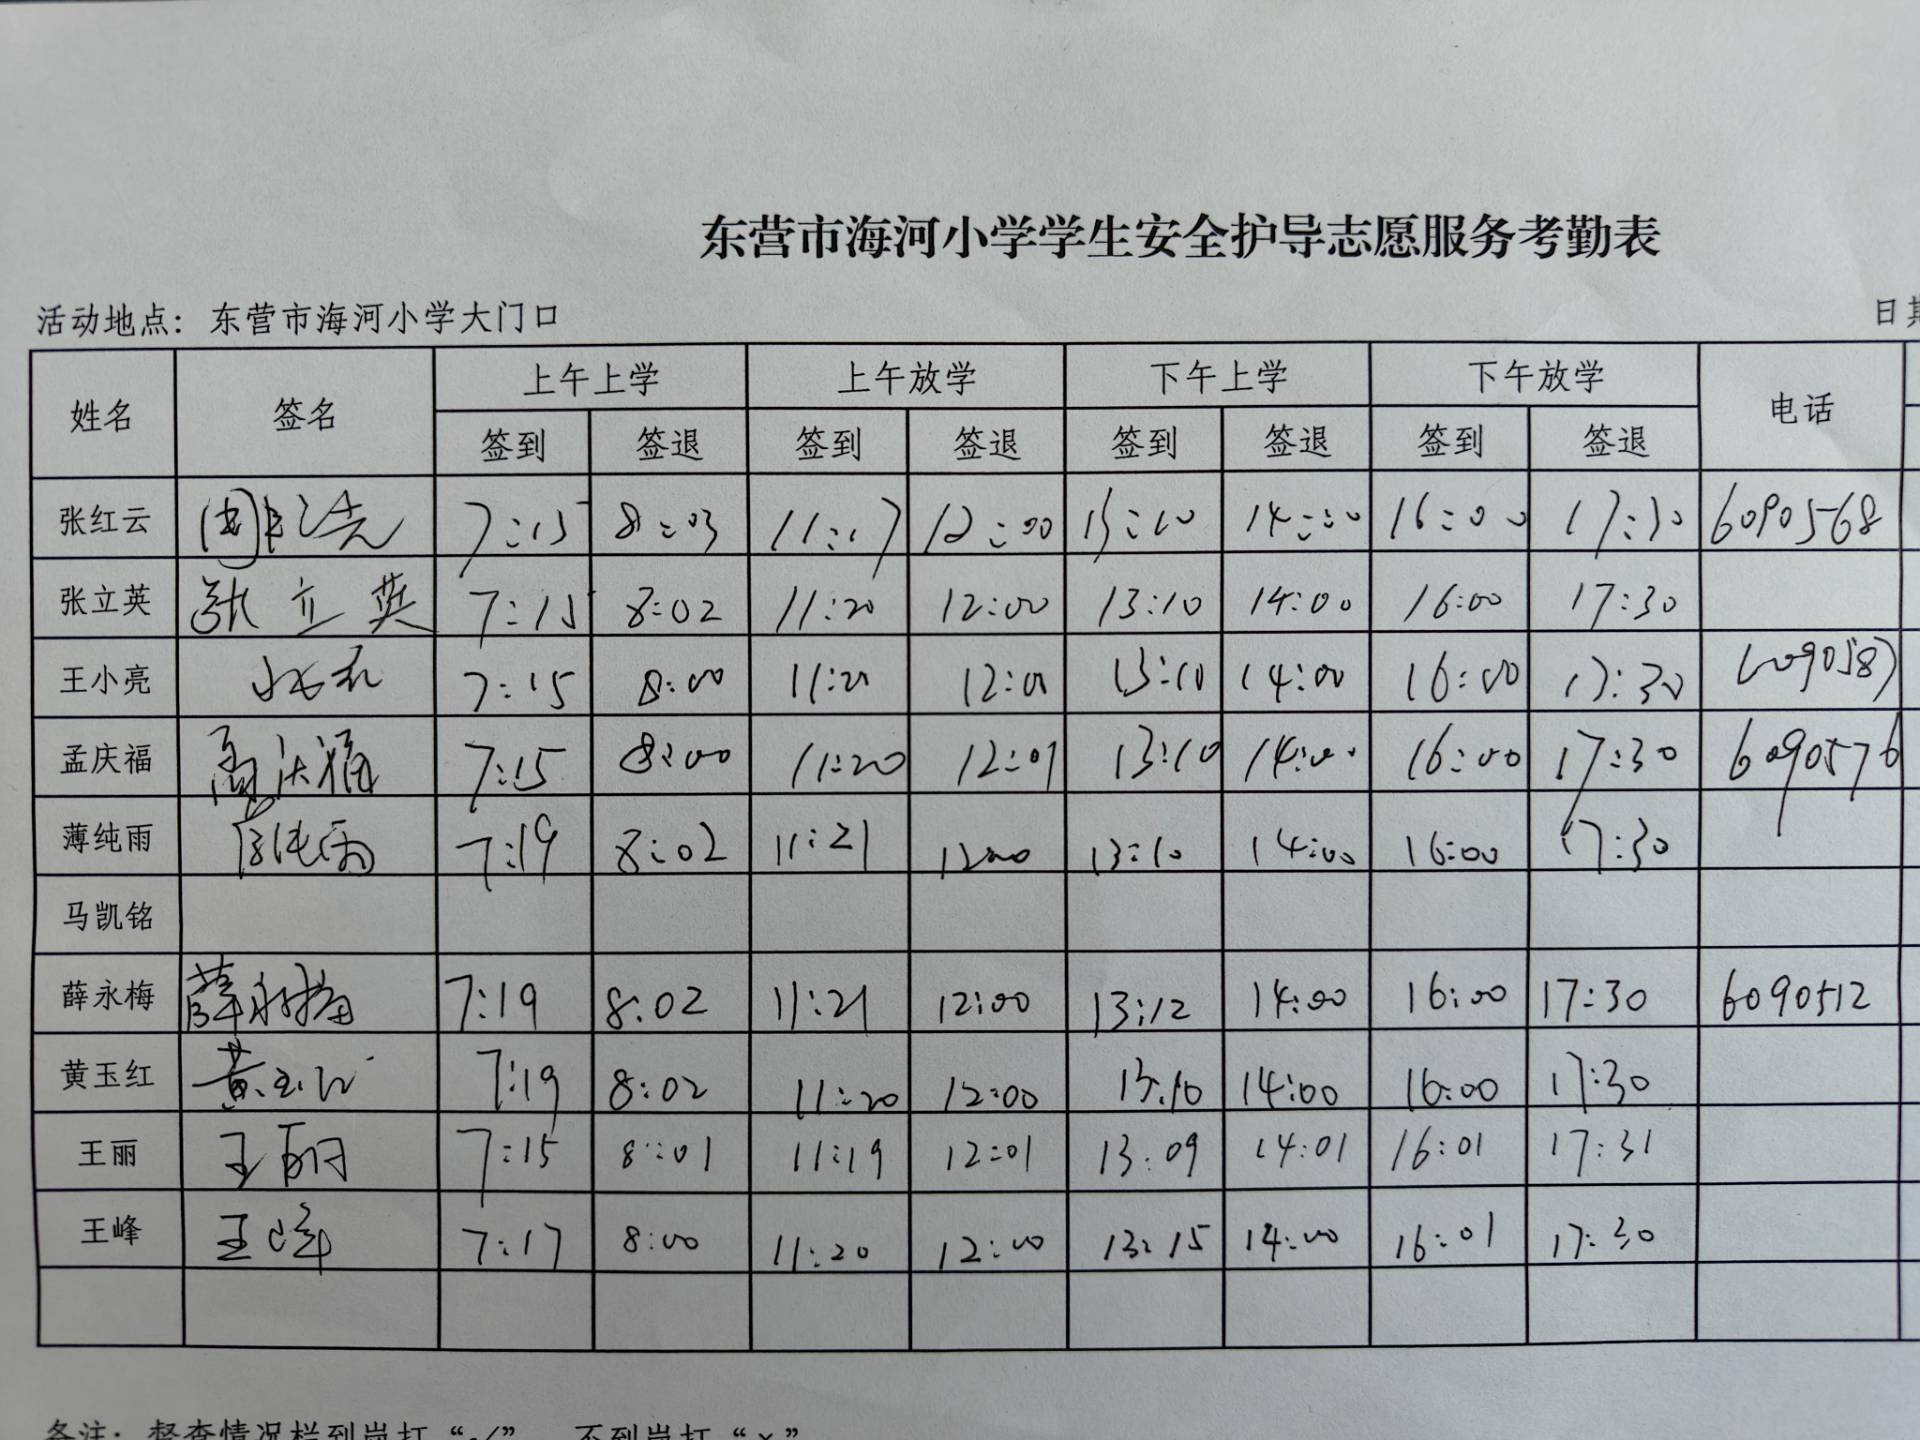 东营市海河小学学生安全护导志愿服务考勤表
活动地点：东营市海河小学大门口 日期
姓名 签名 上午上学 上午放学 下午上学 下午放学 电话
签到 签退 签到 签退 签到 签退 签到 签退
张红云 7:15 8:03 11:17 12:00 13:10 14:00 16:00 17:30 6090568
张立英 张立英 7:15 8:02 11:20 12:00 13:10 14:00 16:00 17:30
王小亮 7:15 8:00 11:21 12:01 13:10 14:00 16:00 17:30 6090587
孟庆福 孟庆福 7:15 8:00 11:20 12:01 13:10 14:00 16:00 17:30 6090576
薄纯雨 薄纯雨 7:19 8:02 11:21 12:00 13:10 14:00 16:00 17:30
马凯铭
薛永梅 薛永梅 7:19 8:02 11:21 12:00 13:12 14:00 16:00 17:30 6090512
黄玉红 黄玉红 7:19 8:02 11:20 12:00 13:10 14:00 16:00 17:30
王丽 王丽 7:15 8:01 11:19 12:01 13:09 14:01 16:01 17:31
王峰 王峰 7:17 8:00 11:20 12:00 13:15 14:00 16:01 17:30
备注：督查情况栏到岗打“√”，不到岗打“×”